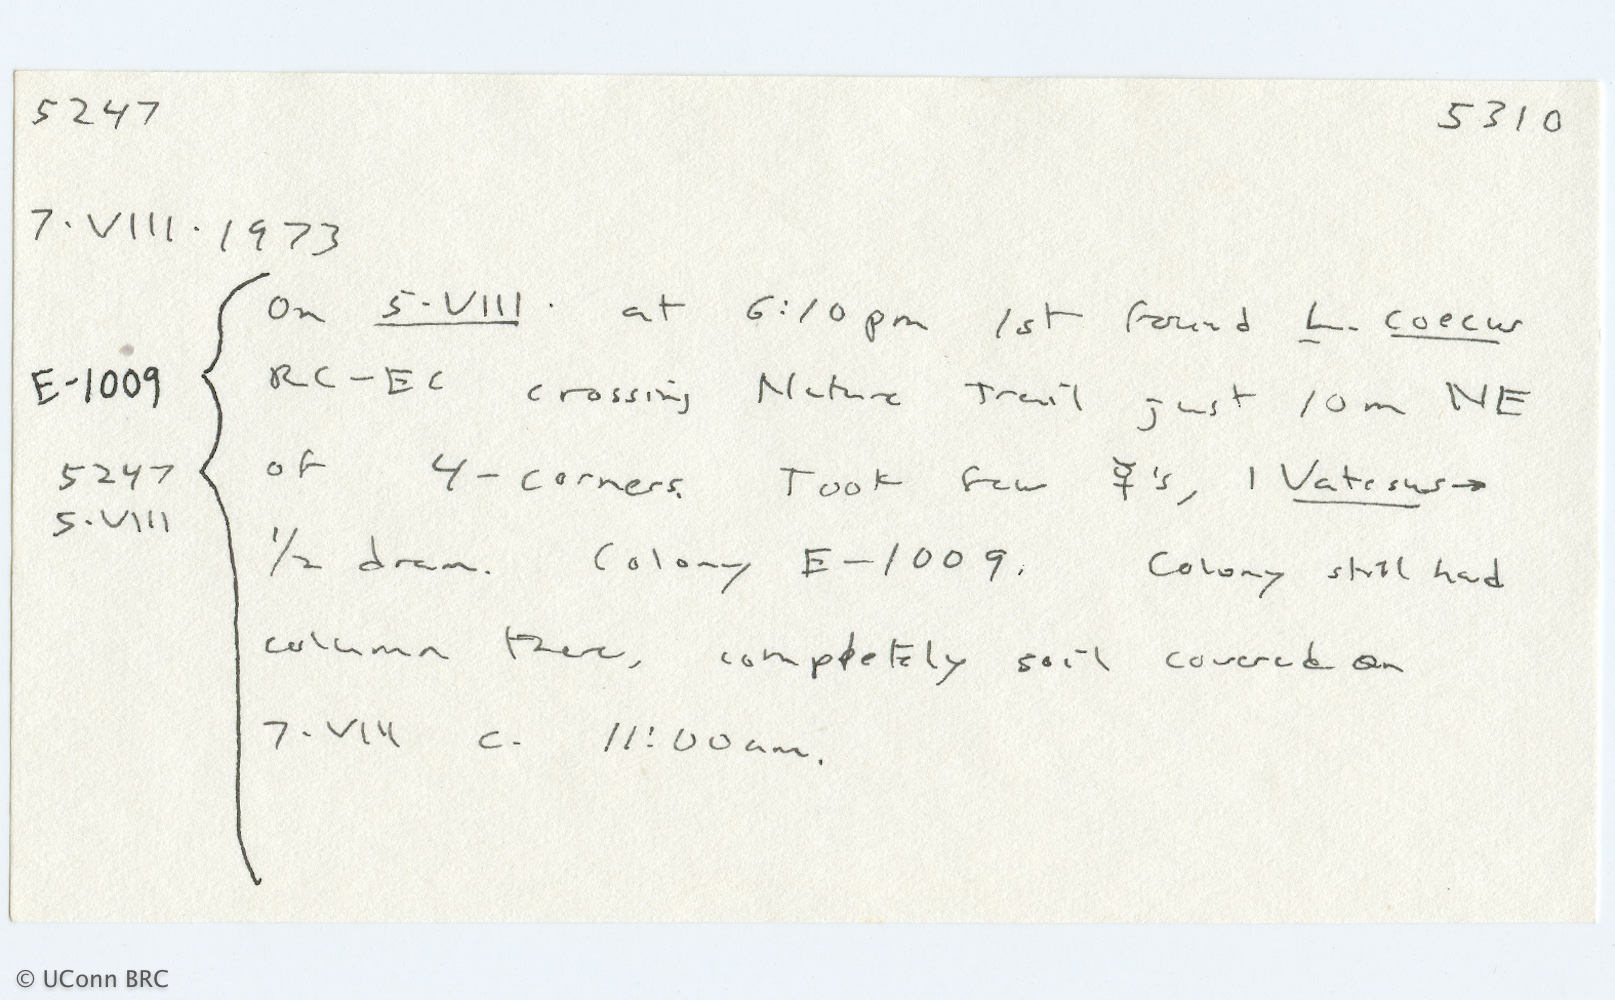 5247 5310
7·VIII·1973
On 5·VIII· at 6:10 pm 1st found L. coecus
E-1009 RC-EC crossing Nature Trail just 10m NE
5247 of 4-corners. Took few ☿'s, 1 Vatesus →
5·VIII
1/2 dram. Colony E-1009. Colony still had
column there, completely soil covered on
7·VIII c. 11:00am.
© UConn BRC